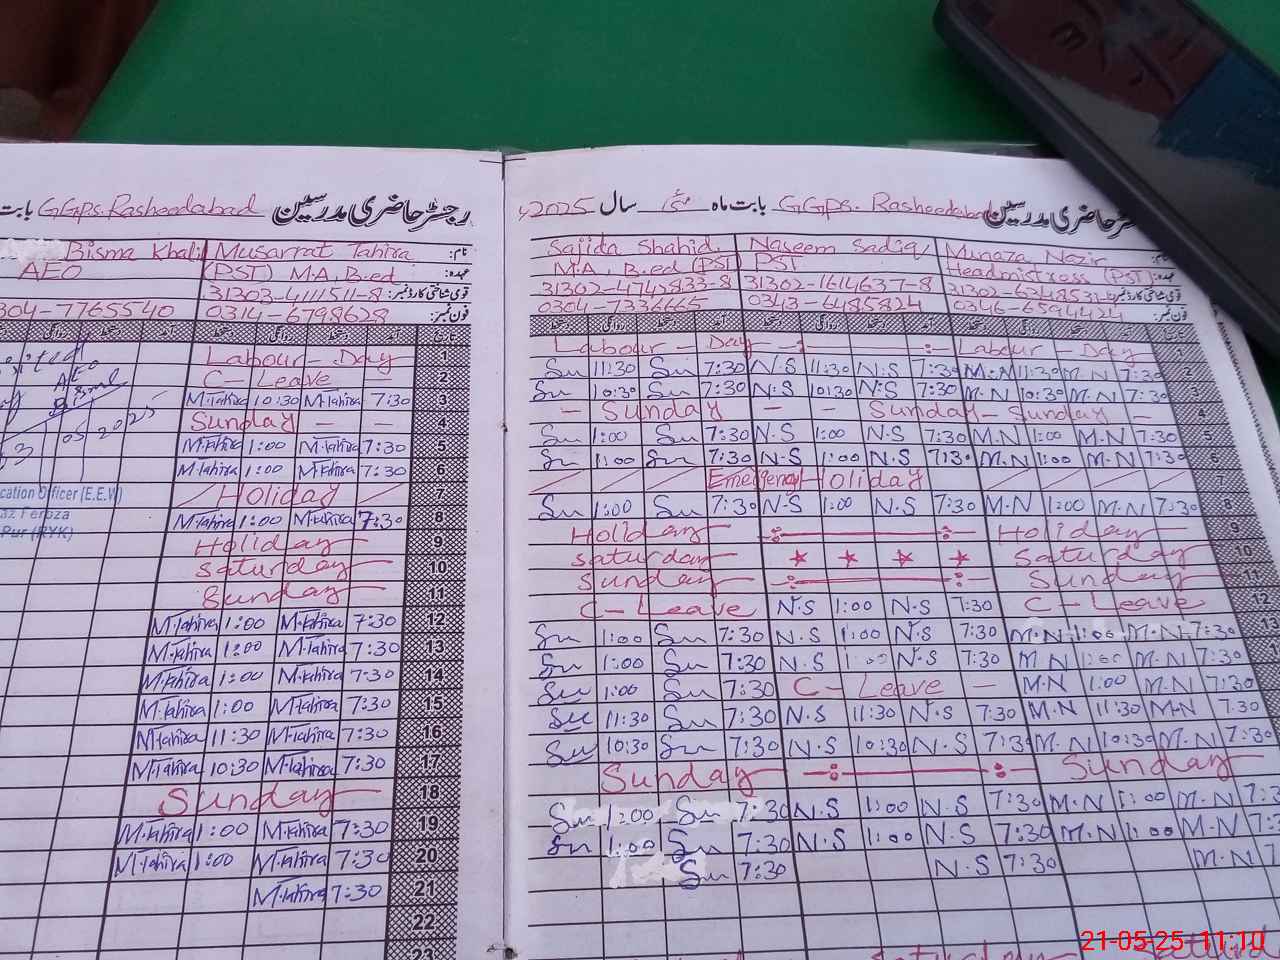 رجسٹر حاضری مدرسین GGPS. Rasheedabad بابت
Bisma Khali Musarrat Tahira نام:
AEO (PST) M.A, B.ed عہدہ:
31303-4111511-8 قومی شناختی کارڈ نمبر:
304-7765540 0314-6798628 فون نمبر:
روانگی دستخط آمد دستخط روانگی دستخط آمد تاریخ
Labour - Day 1
C- Leave — 2
M.Tahira 10:30 M.Tahira 7:30 3
Sunday — — 4
M.Tahira 1:00 M.Tahira 7:30 5
M.Tahira 1:00 M.Tahira 7:30 6
Holiday 7
M.Tahira 1:00 M.Tahira 7:30 8
Holiday 9
Saturday 10
Sunday 11
M.Tahira 1:00 M.Tahira 7:30 12
M.Tahira 1:00 M.Tahira 7:30 13
M.Tahira 1:00 M.Tahira 7:30 14
M.Tahira 1:00 M.Tahira 7:30 15
M.Tahira 11:30 M.Tahira 7:30 16
M.Tahira 10:30 M.Tahira 7:30 17
Sunday 18
M.Tahira 1:00 M.Tahira 7:30 19
M.Tahira 1:00 M.Tahira 7:30 20
M.Tahira 7:30 21
22
23
AEO
05 2025
cation Officer (E.E.W)
az Feroza
Pur (RYK)
رجسٹر حاضری مدرسین GGPS. Rasheedabad بابت ماہ مئی سال 2025ء
Sajida Shahid. Naseem Sadiq Munaza Nazir نام:
M.A, B.ed (PST) PST Headmistress (PST) عہدہ:
31302-4742833-8 31302-1614637-8 قومی شناختی کارڈ نمبر:
0304-7336665 0343-6485824 0346-6594424 فون نمبر:
Labour - Day Labour - Day
Su 11:30 Su 7:30 N.S 11:30 N.S 7:30 M.N 11:30 M.N 7:30 2
Su 10:30 Su 7:30 N.S 10:30 N.S 7:30 M.N 10:30 M.N 7:30 3
— Sunday — — Sunday - Sunday — 4
Su 1:00 Su 7:30 N.S 1:00 N.S 7:30 M.N 1:00 M.N 7:30 5
Su 1:00 Su 7:30 N.S 1:00 N.S 7:30 M.N 1:00 M.N 7:30 6
Emergency Holiday
Su 1:00 Su 7:30 N.S 1:00 N.S 7:30 M.N 1:00 M.N 7:30 8
Holiday Holiday 9
Saturday Saturday 10
Sunday Sunday 11
C - Leave N.S 1:00 N.S 7:30 C - Leave 12
Su 1:00 Su 7:30 N.S 1:00 N.S 7:30 M.N 1:00 M.N 7:30 13
Su 1:00 Su 7:30 N.S 1:00 N.S 7:30 M.N 1:00 M.N 7:30
Su 1:00 Su 7:30 C - Leave — M.N 1:00 M.N 7:30
Su 11:30 Su 7:30 N.S 11:30 N.S 7:30 M.N 11:30 M.N 7:30
Su 10:30 Su 7:30 N.S 10:30 N.S 7:30 M.N 10:30 M.N 7:30
Sunday Sunday
Su 1:00 Su 7:30 N.S 1:00 N.S 7:30 M.N 1:00 M.N
Su 1:00 Su 7:30 N.S 1:00 N.S 7:30 M.N 1:00 M.N
Su 7:30 N.S 7:30 M.N
Saturday Saturday
21-05-25-11:10